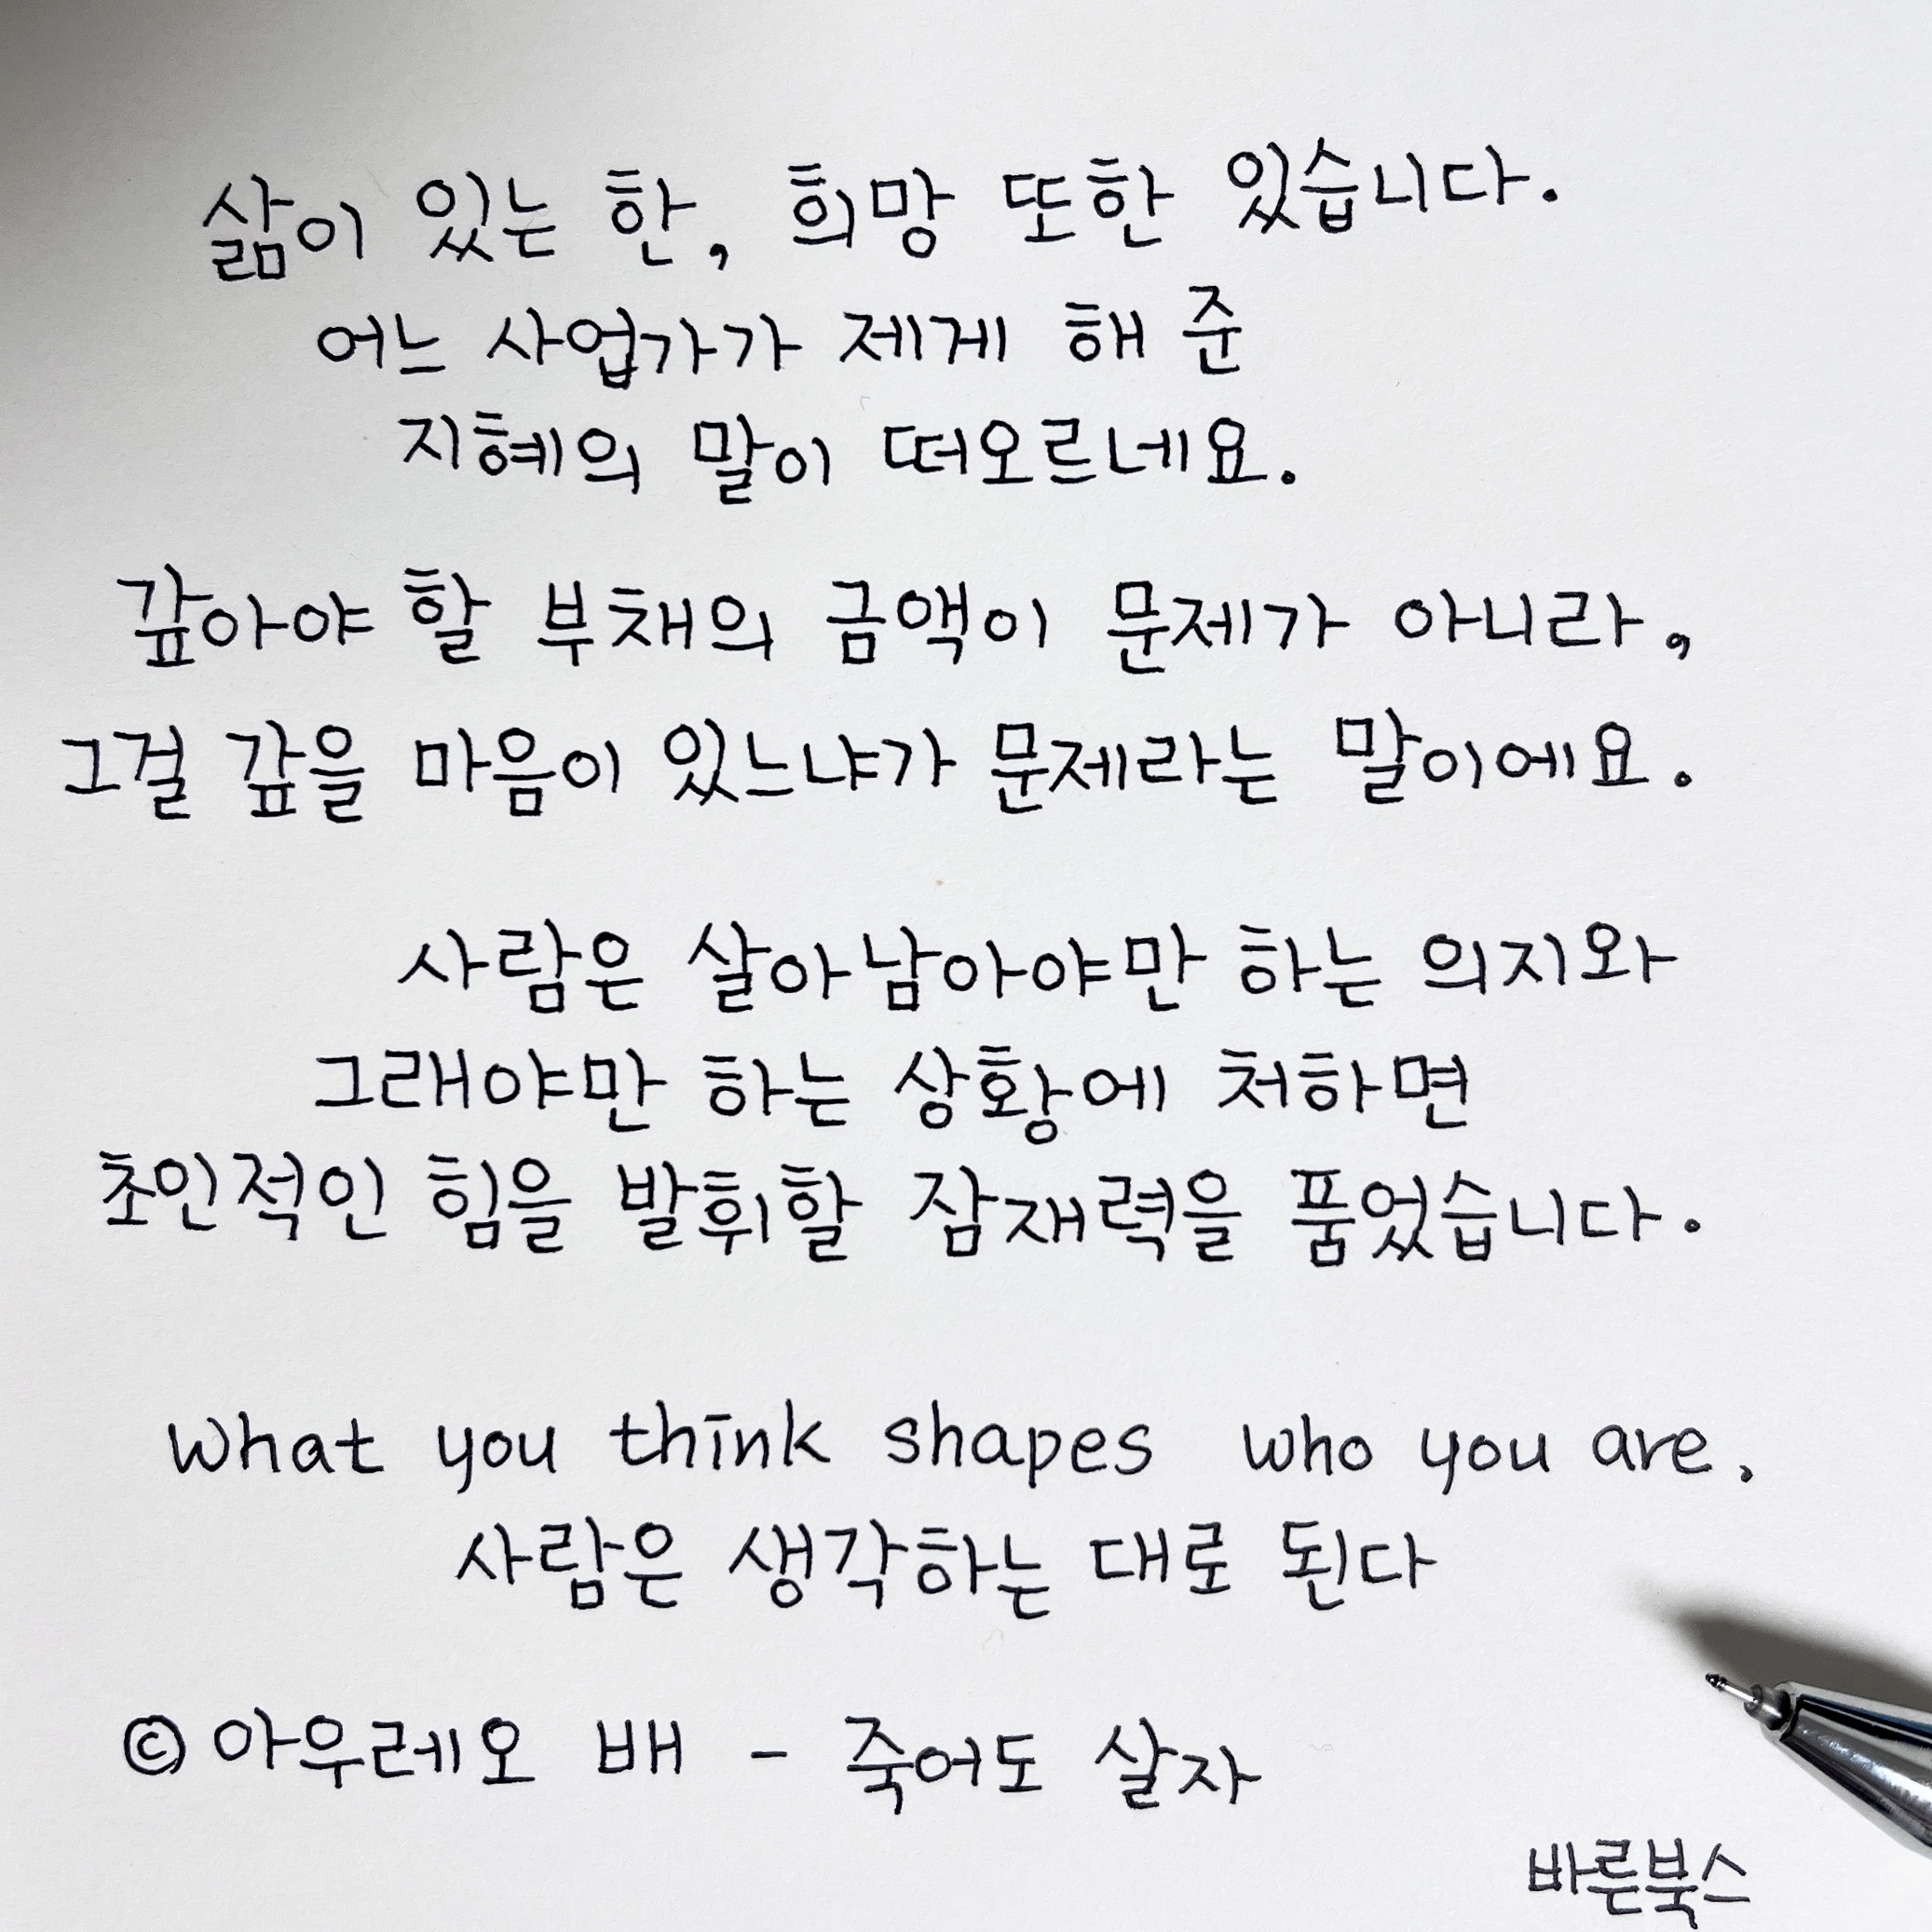 삶이 있는 한, 희망 또한 있습니다.
어느 사업가가 제게 해 준
지혜의 말이 떠오르네요.
갚아야 할 부채의 금액이 문제가 아니라,
그걸 갚을 마음이 있느냐가 문제라는 말이에요.
사람은 살아남아야만 하는 의지와
그래야만 하는 상황에 처하면
초인적인 힘을 발휘할 잠재력을 품었습니다.
What you think shapes who you are.
사람은 생각하는 대로 된다
© 아우레오 배 - 죽어도 살자
바른북스